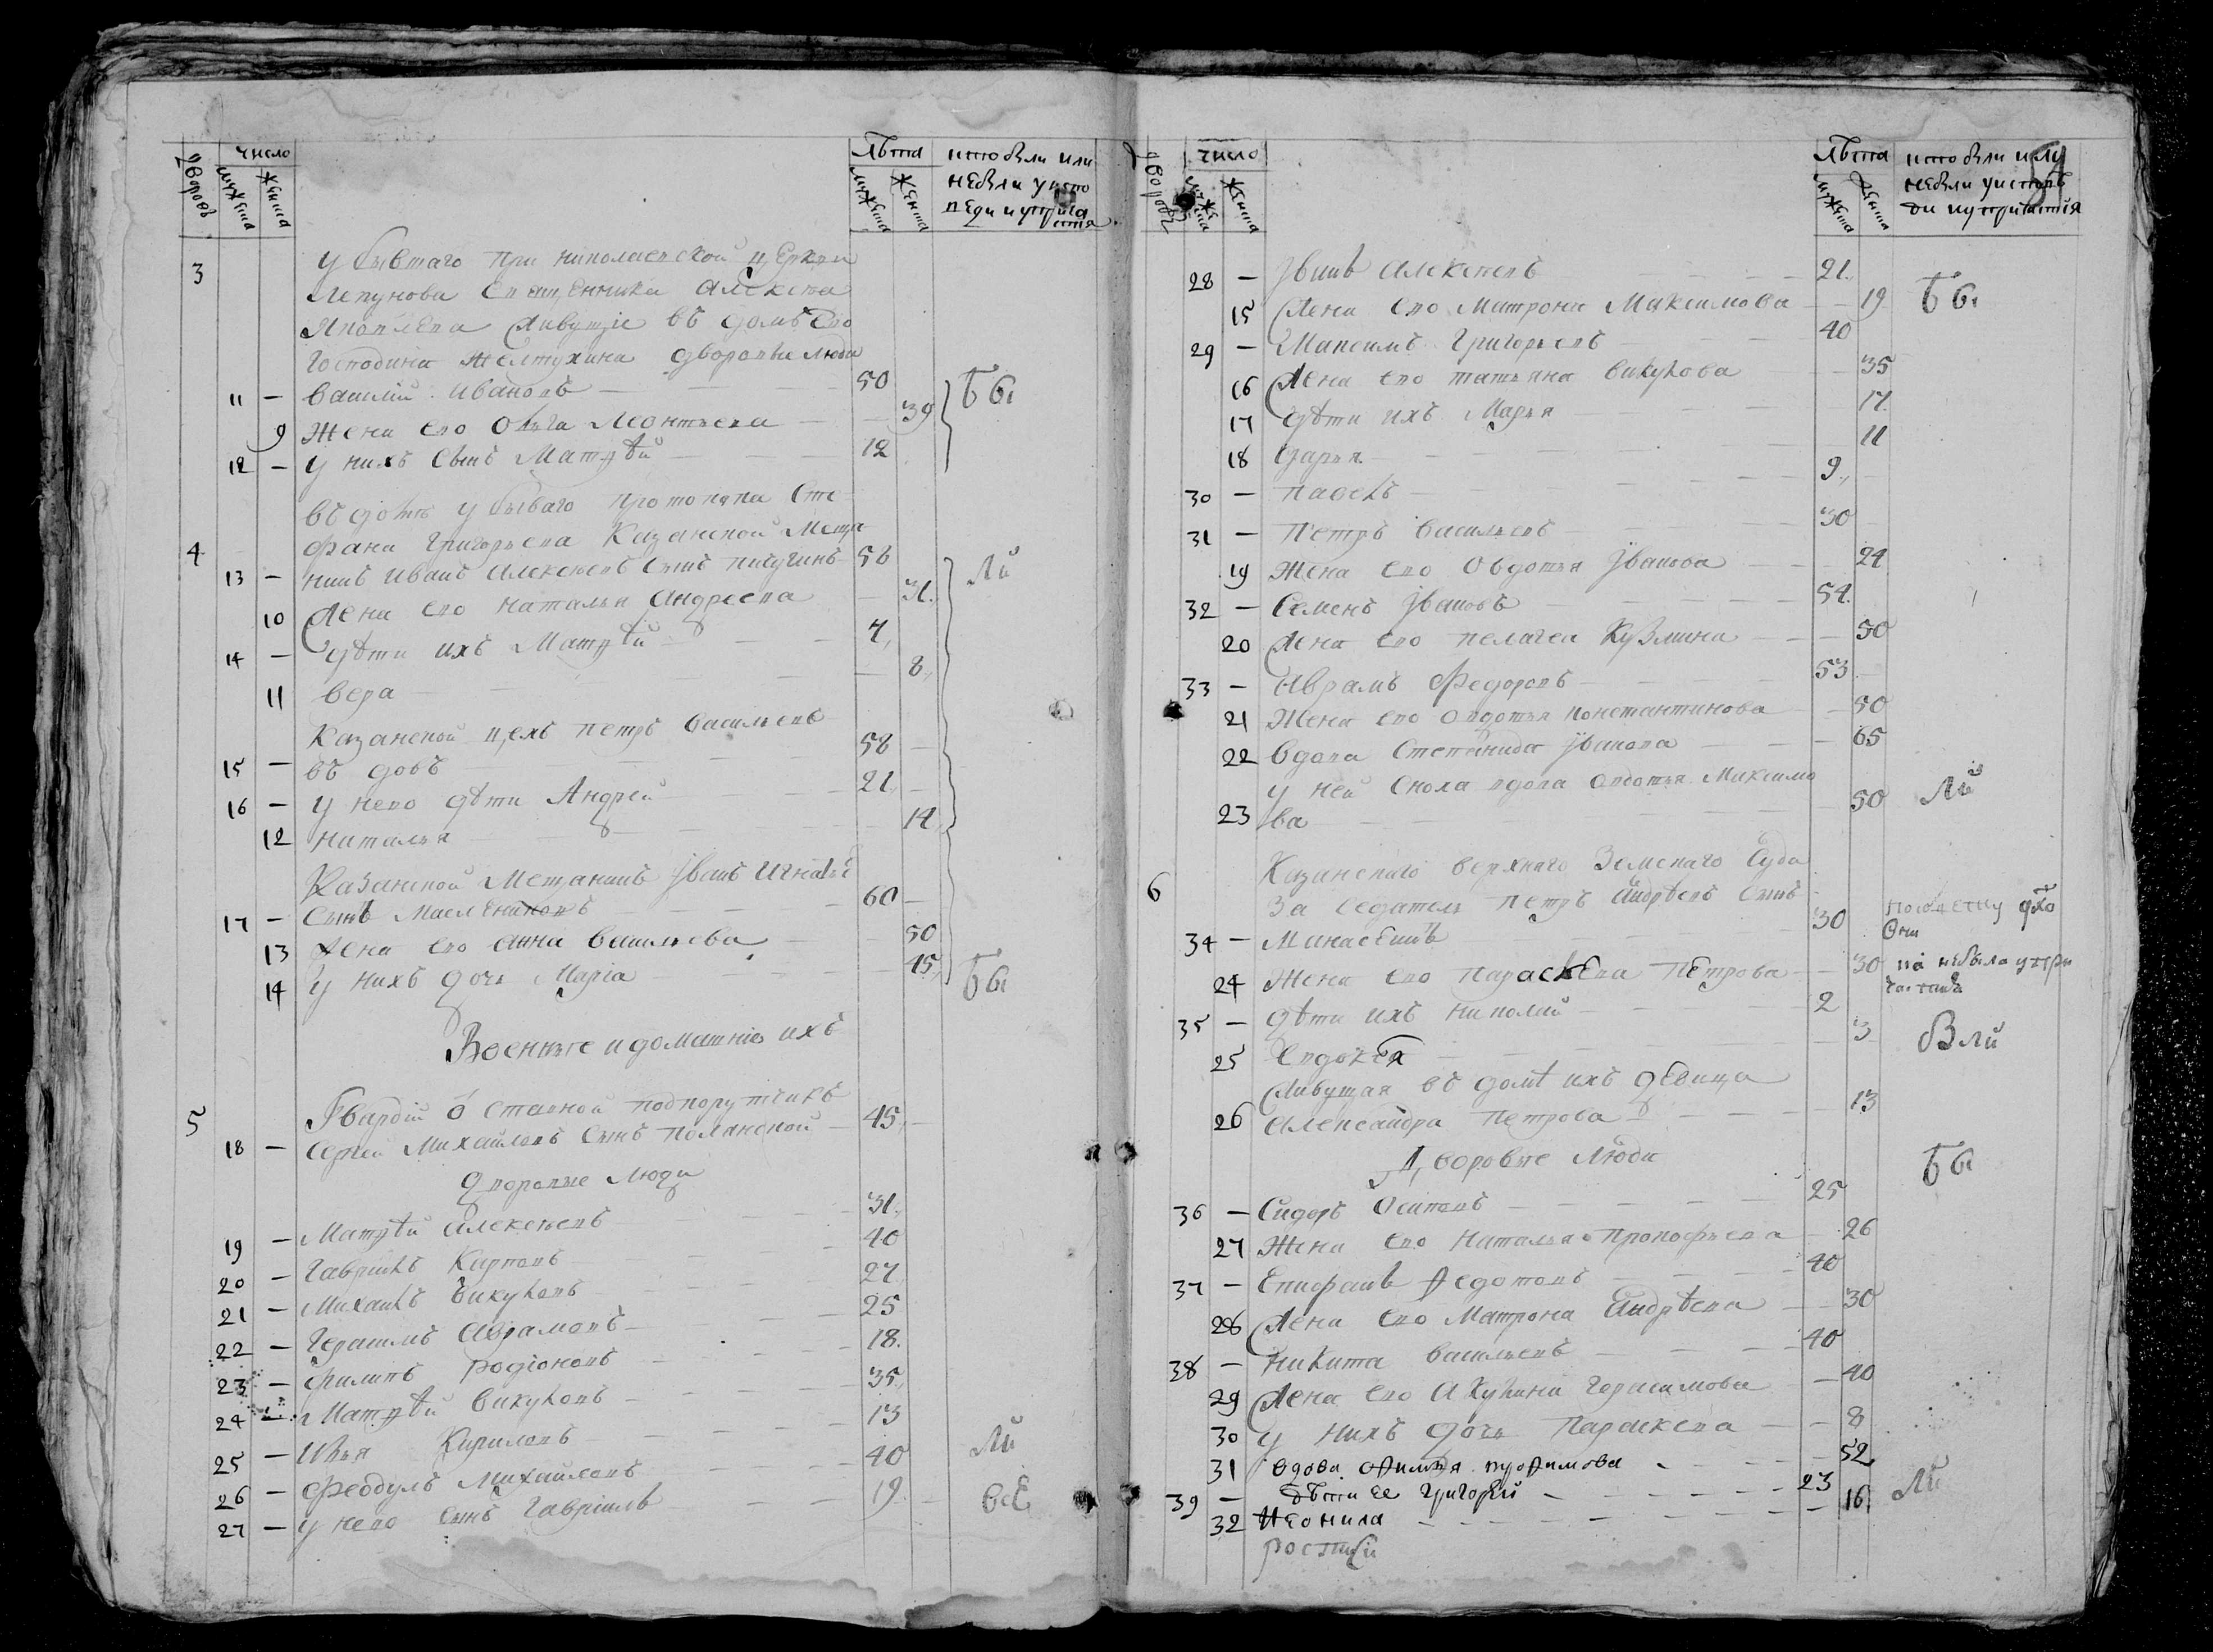 Дворовъ
число
мужеска
женска
Лѣта
мужеска
женска
кто были или
небыли уиспо
веди и уприча
стия
3
У бывшаго при николаевской церкви
Священника Алексѣя
Яковлева живущіе въ домѣ Его
господина Желтухина дворовые люди
11 — василій Ивановъ — 50 Бы
9 Жена его Ольга Леонтьева — 39
12 — у нихъ сынъ Матѳѣй — 12
въ домѣ у бываго протопопа Сте
4 фана Григорьева Казанской Меща
13 — нинъ Иванъ Алексѣевъ сынъ пичугинъ 58 Ли
10 Жена его наталья Андреева — 31.
14 — дѣти ихъ Матѳѣй — 7,
11 вера — 8,
Казанской цехъ петръ васильевъ
15 — въ довъ — 58
16 — у него дѣти Андрей — 21,
12 наталья — 14,
Казанской Мещанинъ Јванъ Игнатьі
17 — сынъ Маслениковъ — 60
13 Жена его анна васильева — 50
14 у нихъ дочь Маріа — 15, Бы
Военные и домашніе ихъ
5 Гвардіи отставной подпорутчикъ
18 — сергей Михайловъ сынъ полянской — 45,
дворовые люди
19 — Матѳѣй алексѣевъ — 31,
20 — Гаврилъ Карповъ — 40
21 — Михаилъ викуловъ — 27,
22 — Герасимъ аврамовъ — 25
23 — филипъ родіоновъ — 18.
24 — Матѳѣй викуловъ — 35,
25 — Илья Кириловъ — 13 Ли
26 — Феодулъ Михайловъ — 40
27 — у него сынъ Гавріилъ — 19. всѣ
Дворовъ
число
мужеска
женска
Лѣта
мужеска
женска
кто были или
небыли уисповѣ
ди иупричастія
28 — Јванъ алексѣевъ — 21.
15 Жена его Матрона Максимова — 19 Бы
29 — Максимъ Григорьевъ — 40
16 Жена его татьяна викулова — 35
17 дѣти ихъ Марья — 17.
18 дарья — 11
30 — павелъ — 9.,
31 — Петръ васильевъ — 30
19 Жена его Овдотья Јванова — 24
32 — Семенъ Јвановъ — 54.
20 Жена его пелагея Кузмина — 50
33 — Аврамъ Федоровъ — 53
21 Жена его овдотья константинова — 50
22 вдова Степанида Јванова — 65
у ней сноха вдова овдотья Максимо
23 ва — 50 Ли
Казанскаго верхняго Земскаго Суда
6 За седатель петръ андрѣевъ сынъ
34 — Манасеинъ — 30
24 Жена его параскева Петрова — 30 на небыла упри
35 — дѣти ихъ николай — 2
25 Евдокея — 3 Были
живущая въ домѣ ихъ девица
26 александра петрова — 13
Дворовые люди Бы
36 — Сидоръ Осиповъ — 25
27 Жена его Наталья прокофьева — 26
37 — Епифанъ Федотовъ — 40
28 Жена его Матрона андрѣева — 30
38 — никита васильевъ — 40
29 Жена его Акулина герасимова — 40
30 у нихъ дочь Параскева — 8
31 вдова. Офимья. труфимова — 52
39 — дѣти ее григорей — 23 Ли
32 Неонила — 16,
росписи